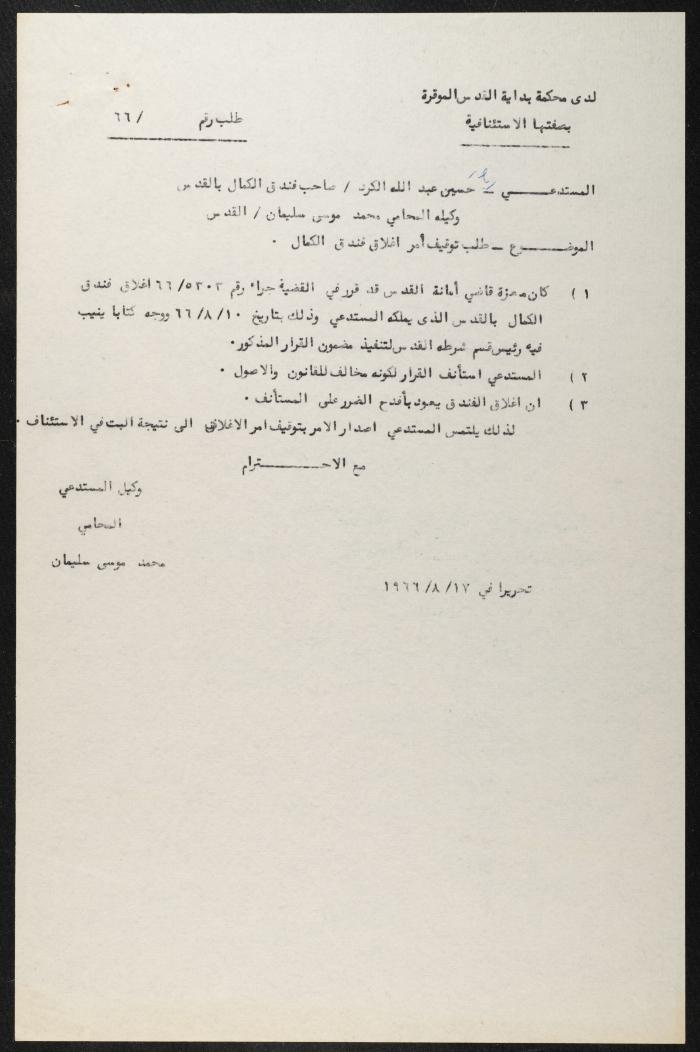 لدى محكمة بداية القدس الموقرة
بصفتها الاستئنافية
طلب رقم / ٦٦
المستدعـــــي ـ حسين عبد الله الكرد / صاحب فندق الكمال بالقدس
وكيله المحامي محمد موسى سليمان / القدس
الموضـــــوع ـ طلب توقيف أمر اغلاق فندق الكمال .
١ ) كان حضرة قاضي أمانة القدس قد قرر في القضية جزاء رقم ٦٦/٥٣٠٣ اغلاق فندق
الكمال بالقدس الذى يملكه المستدعي وذلك بتاريخ ٦٦/٨/١٠ ووجه كتابا ينيب
فيه رئيس قسم شرطه القدس لتنفيذ مضمون القرار المذكور .
٢ ) المستدعي استأنف القرار لكونه مخالف للقانون والاصول .
٣ ) ان اغلاق الفندق يعود بأفدح الضرر على المستأنف .
لذلك يلتمس المستدعي اصدار الامر بتوقيف امر الاغلاق الى نتيجة البت في الاستئناف .
مع الاحـــــــترام
وكيل المستدعي
المحامي
محمد موسى سليمان
تحريرا في ١٩٦٦/٨/١٧